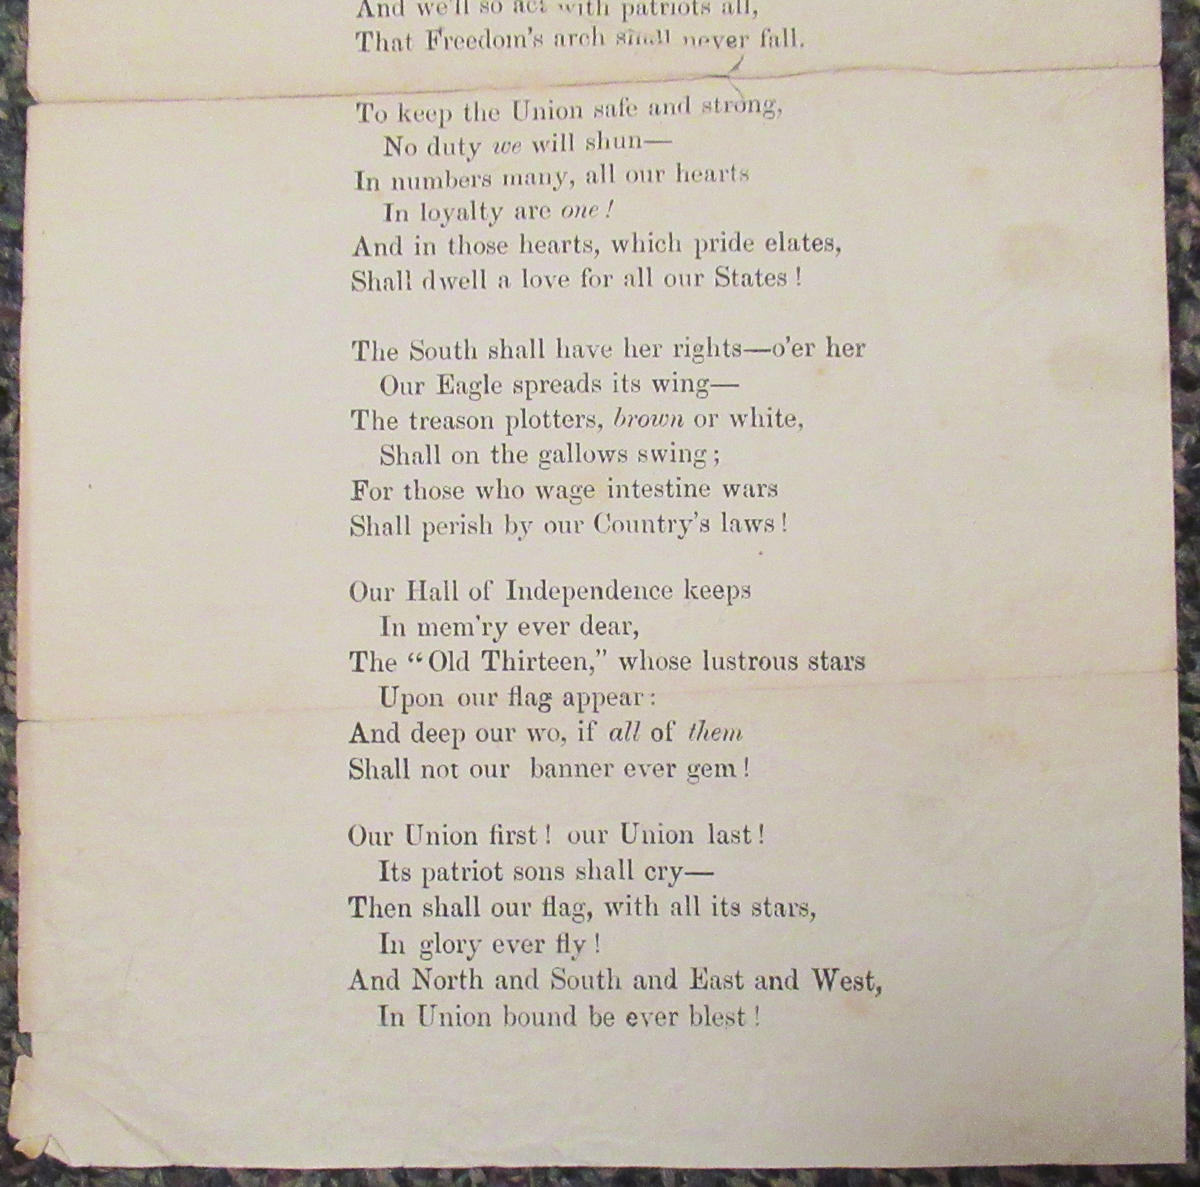 And we'll so act with patriots all,
That Freedom's arch shall never fall.
To keep the Union safe and strong,
No duty we will shun—
In numbers many, all our hearts
In loyalty are one!
And in those hearts, which pride elates,
Shall dwell a love for all our States!
The South shall have her rights—o'er her
Our Eagle spreads its wing—
The treason plotters, brown or white,
Shall on the gallows swing;
For those who wage intestine wars
Shall perish by our Country's laws!
Our Hall of Independence keeps
In mem'ry ever dear,
The "Old Thirteen," whose lustrous stars
Upon our flag appear:
And deep our wo, if all of them
Shall not our banner ever gem!
Our Union first! our Union last!
Its patriot sons shall cry—
Then shall our flag, with all its stars,
In glory ever fly!
And North and South and East and West,
In Union bound be ever blest!